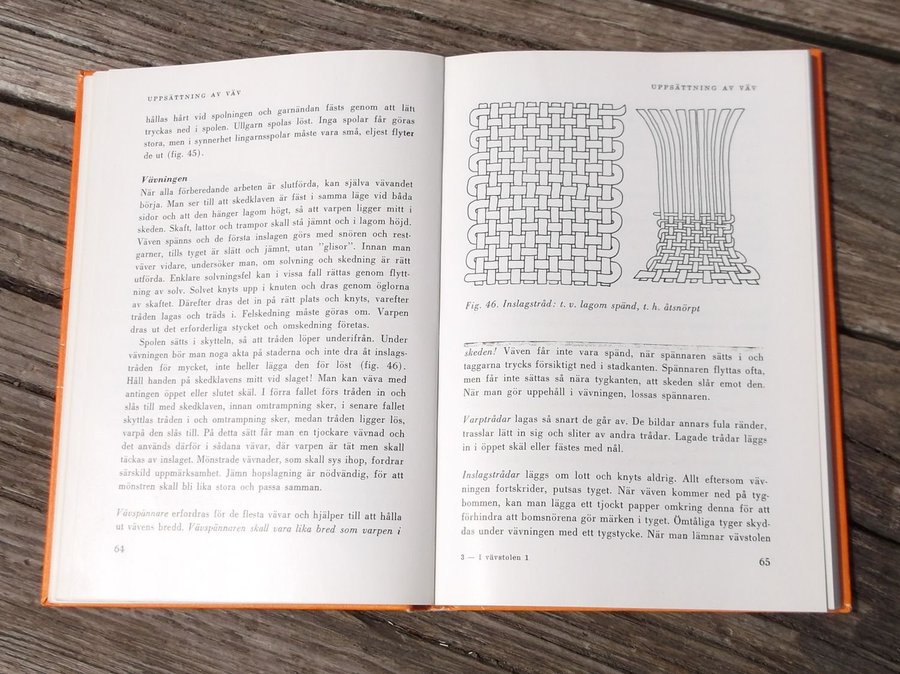 UPPSÄTTNING AV VÄV
hållas hårt vid spolningen och garnändan fästs genom att lätt
tryckas ned i spolen. Ullgarn spolas löst. Inga spolar får göras
stora, men i synnerhet lingarnsspolar måste vara små, eljest flyter
de ut (fig. 45).
Vävningen
När alla förberedande arbeten är slutförda, kan själva vävandet
börja. Man ser till att skedklaven är fäst i samma läge vid båda
sidor och att den hänger lagom högt, så att varpen ligger mitt i
skeden. Skaft, lattor och trampor skall stå jämnt och i lagom höjd.
Väven spänns och de första inslagen görs med snören och rest-
garner, tills tyget är slätt och jämnt, utan "glisor". Innan man
väver vidare, undersöker man, om solvning och skedning är rätt
utförda. Enklare solvningsfel kan i vissa fall rättas genom flytt-
ning av solv. Solvet knyts upp i knuten och dras genom öglorna
av skaftet. Därefter dras det in på rätt plats och knyts, varefter
tråden lagas och träds i. Felskedning måste göras om. Varpen
dras ut det erforderliga stycket och omskedning företas.
Spolen sätts i skytteln, så att tråden löper underifrån. Under
vävningen bör man noga akta på staderna och inte dra åt inslags-
tråden för mycket, inte heller lägga den för löst (fig. 46).
Håll handen på skedklavens mitt vid slaget! Man kan väva med
antingen öppet eller slutet skäl. I förra fallet förs tråden in och
slås till med skedklaven, innan omtrampning sker, i senare fallet
skyttlas tråden i och omtrampning sker, medan tråden ligger lös,
varpå den slås till. På detta sätt får man en tjockare vävnad och
det används därför i sådana vävar, där varpen är tät men skall
täckas av inslaget. Mönstrade vävnader, som skall sys ihop, fordrar
särskild uppmärksamhet. Jämn hopslagning är nödvändig, för att
mönstren skall bli lika stora och passa samman.
Vävspännare erfordras för de flesta vävar och hjälper till att hålla
ut vävens bredd. Vävspännaren skall vara lika bred som varpen i
64
UPPSÄTTNING AV VÄV
Fig. 46. Inslagstråd: t. v. lagom spänd, t. h. åtsnörpt
skeden! Väven får inte vara spänd, när spännaren sätts i och
taggarna trycks försiktigt ned i stadkanten. Spännaren flyttas ofta,
men får inte sättas så nära tygkanten, att skeden slår emot den.
När man gör uppehåll i vävningen, lossas spännaren.
Varptrådar lagas så snart de går av. De bildar annars fula ränder,
trasslar lätt in sig och sliter av andra trådar. Lagade trådar läggs
in i öppet skäl eller fästes med nål.
Inslagstrådar läggs om lott och knyts aldrig. Allt eftersom väv-
ningen fortskrider, putsas tyget. När väven kommer ned på tyg-
bommen, kan man lägga ett tjockt papper omkring denna för att
förhindra att bomsnörena gör märken i tyget. Ömtåliga tyger skyd-
das under vävningen med ett tygstycke. När man lämnar vävstolen
3 — I vävstolen 1
65